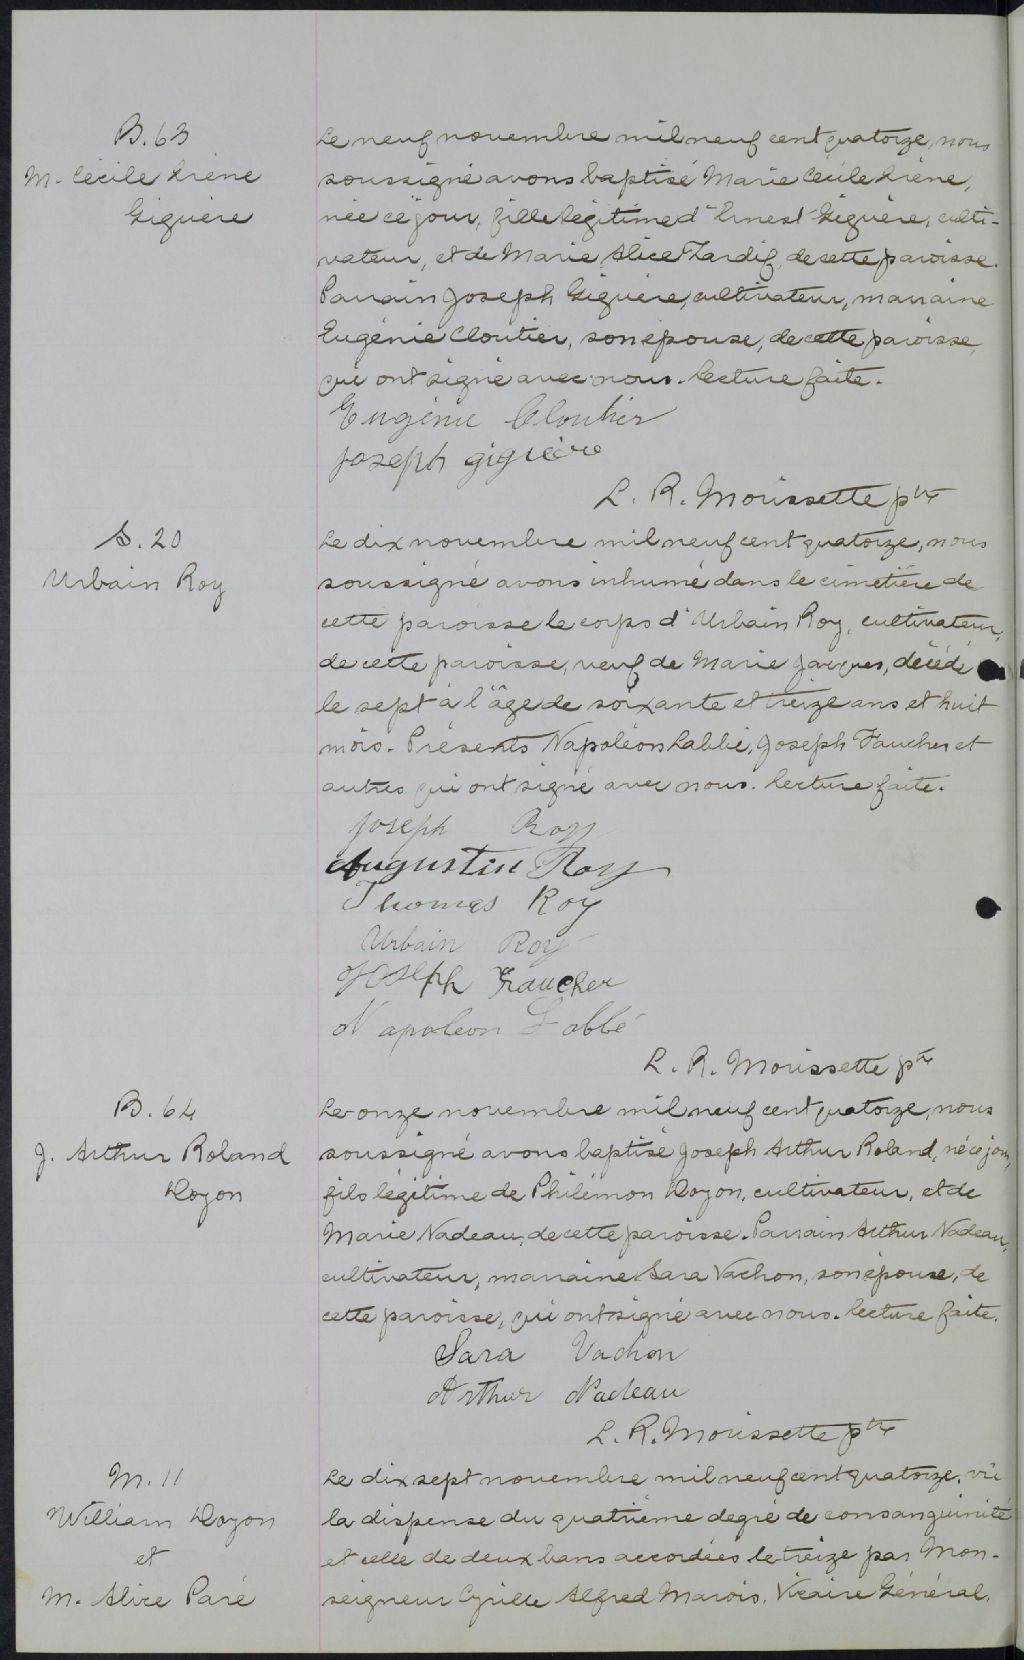 B. 63
M. Cécile Irène
Giguère
Le neuf novembre mil neuf cent quatorze, nous
soussigné avons baptisé Marie Cécile Irène,
née ce jour, fille légitime d'Ernest Giguère, culti-
vateur, et de Marie Alice Tardif, de cette paroisse.
Parrain Joseph Giguère, cultivateur, marraine
Eugénie Cloutier, son épouse, de cette paroisse,
qui ont signé avec nous. Lecture faite.
Eugénie Cloutier
Joseph giguère
L. R. Morissette ptre
S. 20
Urbain Roy
Le dix novembre mil neuf cent quatorze, nous
soussigné avons inhumé dans le cimetière de
cette paroisse le corps d'Urbain Roy, cultivateur,
de cette paroisse, veuf de Marie Jacques, décédé
le sept à l'âge de soixante et treize ans et huit
mois. Présents Napoléon Labbé, Joseph Faucher et
autres qui ont signé avec nous. Lecture faite.
Joseph Roy
Augustin Roy
Thomas Roy
Urbain Roy
Joseph Faucher
Napoleon Labbé
L. R. Morissette ptre
B. 64
J. Arthur Roland
Doyon
Le onze novembre mil neuf cent quatorze, nous
soussigné avons baptisé Joseph Arthur Roland, né ce jour,
fils légitime de Philémon Doyon, cultivateur, et de
Marie Nadeau, de cette paroisse. Parrain Arthur Nadeau,
cultivateur, marraine Sara Vachon, son épouse, de
cette paroisse, qui ont signé avec nous. Lecture faite.
Sara Vachon
Arthur Nadeau
L. R. Morissette ptre
M. 11
William Doyon
et
M. Alice Paré
Le dix sept novembre mil neuf cent quatorze, vu
la dispense du quatrième degré de consanguinité
et celle de deux bans accordées le treize par Mon-
seigneur Cyrille Alfred Marois, Vicaire Général,